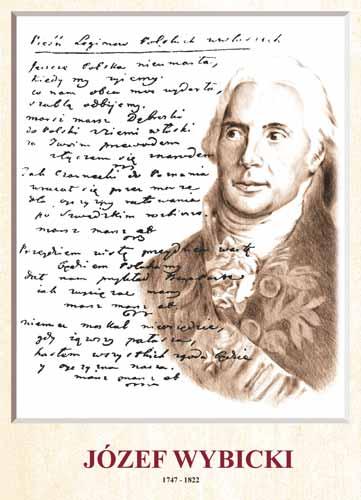 Pieśń Legionów Polskich we Włoszech
Jeszcze Polska nie umarła,
kiedy my żyjemy.
co nam obca moc wydarła,
szablą odbijemy.
marsz marsz Dąbrowski
do Polski z ziemi włoski
za Twoim przewodem
złączem się z narodem
Jak Czarnecki do Poznania
wracał się przez morze
dla ojczyzny ratowania
po Szwedzkim rozbiorze.
marsz marsz
Przejdziem wisłę przejdziem wartę
będziem Polakami
dał nam przykład Bonaparte
jak zwyciężać mamy
marsz marsz
niemiec moskal nieosiędzie,
gdy jąwszy pałasza,
hasłem wszystkich zgoda będzie
y ojczyzna nasza.
marsz marsz
JÓZEF WYBICKI
1747 - 1822